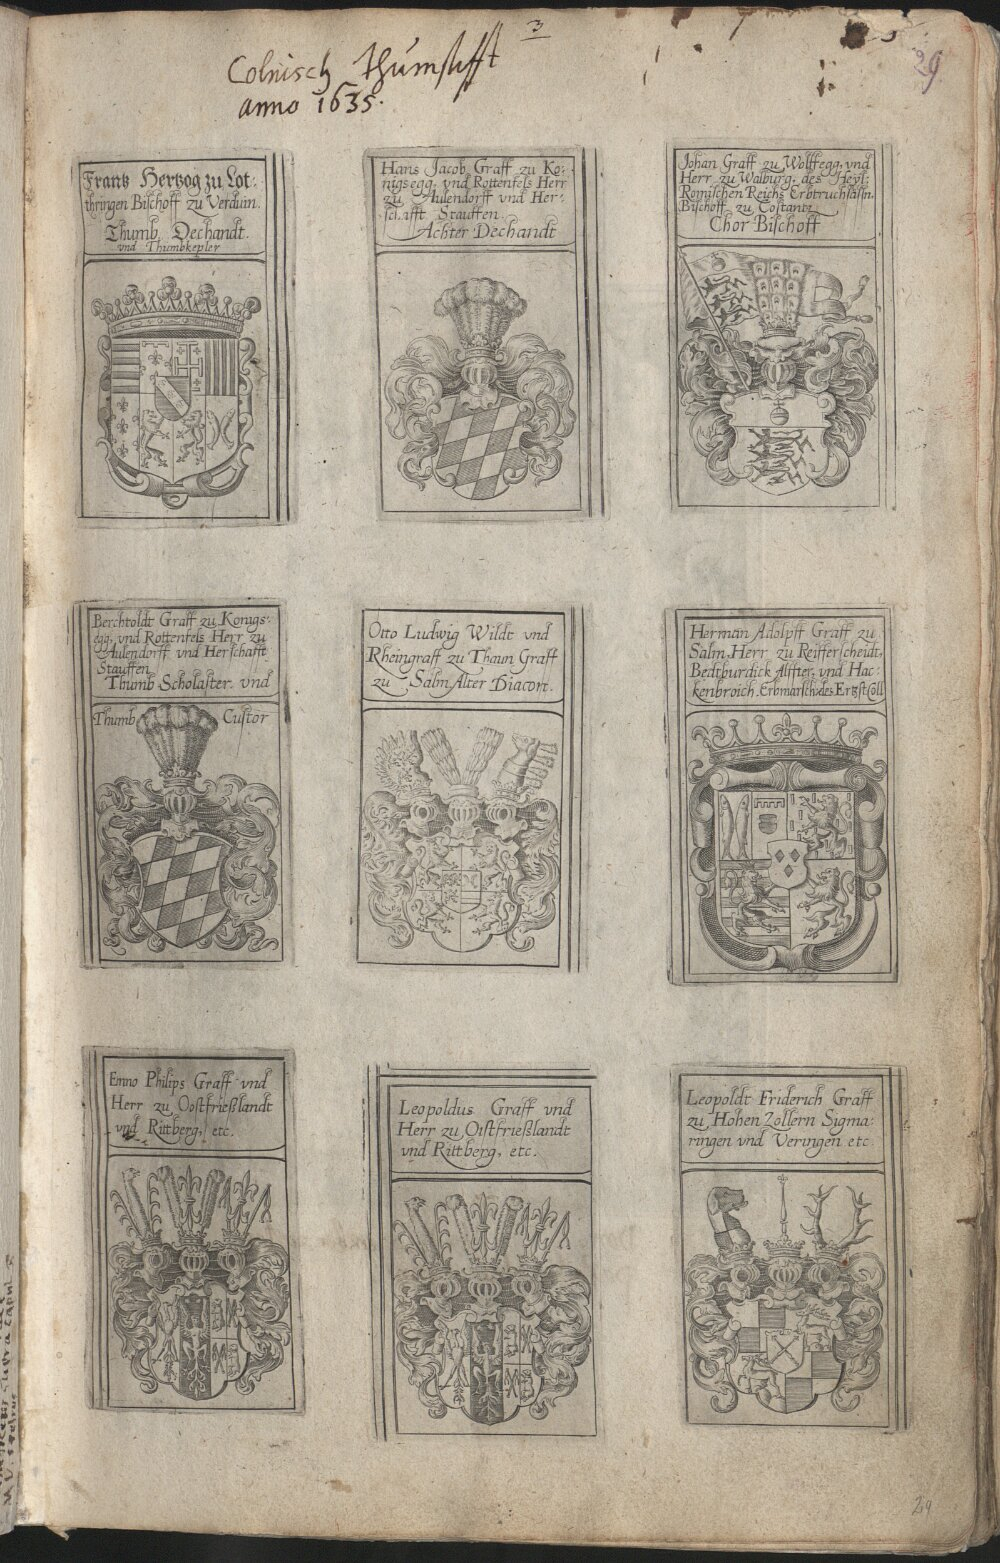 3
29
Colnisch Thumstifft
anno 1635.
Frantz Hertzog zu Lot:
thringen Bischoff zu Verduin.
Thumb Dechandt.
vnd Thumbkepler
Hans Jacob Graff zu Kö:
nigsegg, vnd Rottenfels Herr
zu Aulendorff vnd Her:
schafft Stauffen.
Achter Dechandt
Johan Graff zu Wolffegg, vnd
Herr zu Walburg, des Heyl:
Römischen Reichs Erbtruchsässn.
Bischoff zu Costantz
Chor Bischoff
Berchtoldt Graff zu Königs:
egg, vnd Rottenfels Herr zu
Aulendorff vnd Herschafft
Stauffen
Thumb Scholaster. vnd
Thumb Custor
Otto Ludwig Wildt vnd
Rheingraff zu Thaun Graff
zu Salm Alter Diacon.
Herman Adolpff Graff zu
Salm, Herr zu Reifferscheidt,
Bedtburdick Alffter, vnd Hac:
kenbroich, Erbmarsch: des Ertzst Cöll
Enno Philips Graff vnd
Herr zu Oostfrießlandt
vnd Rittberg, etc.
Leopoldus Graff vnd
Herr zu Oistfrießlandt
vnd Rittberg, etc.
Leopoldt Friderich Graff
zu Hohen Zollern Sigma:
ringen vnd Veringen etc
29